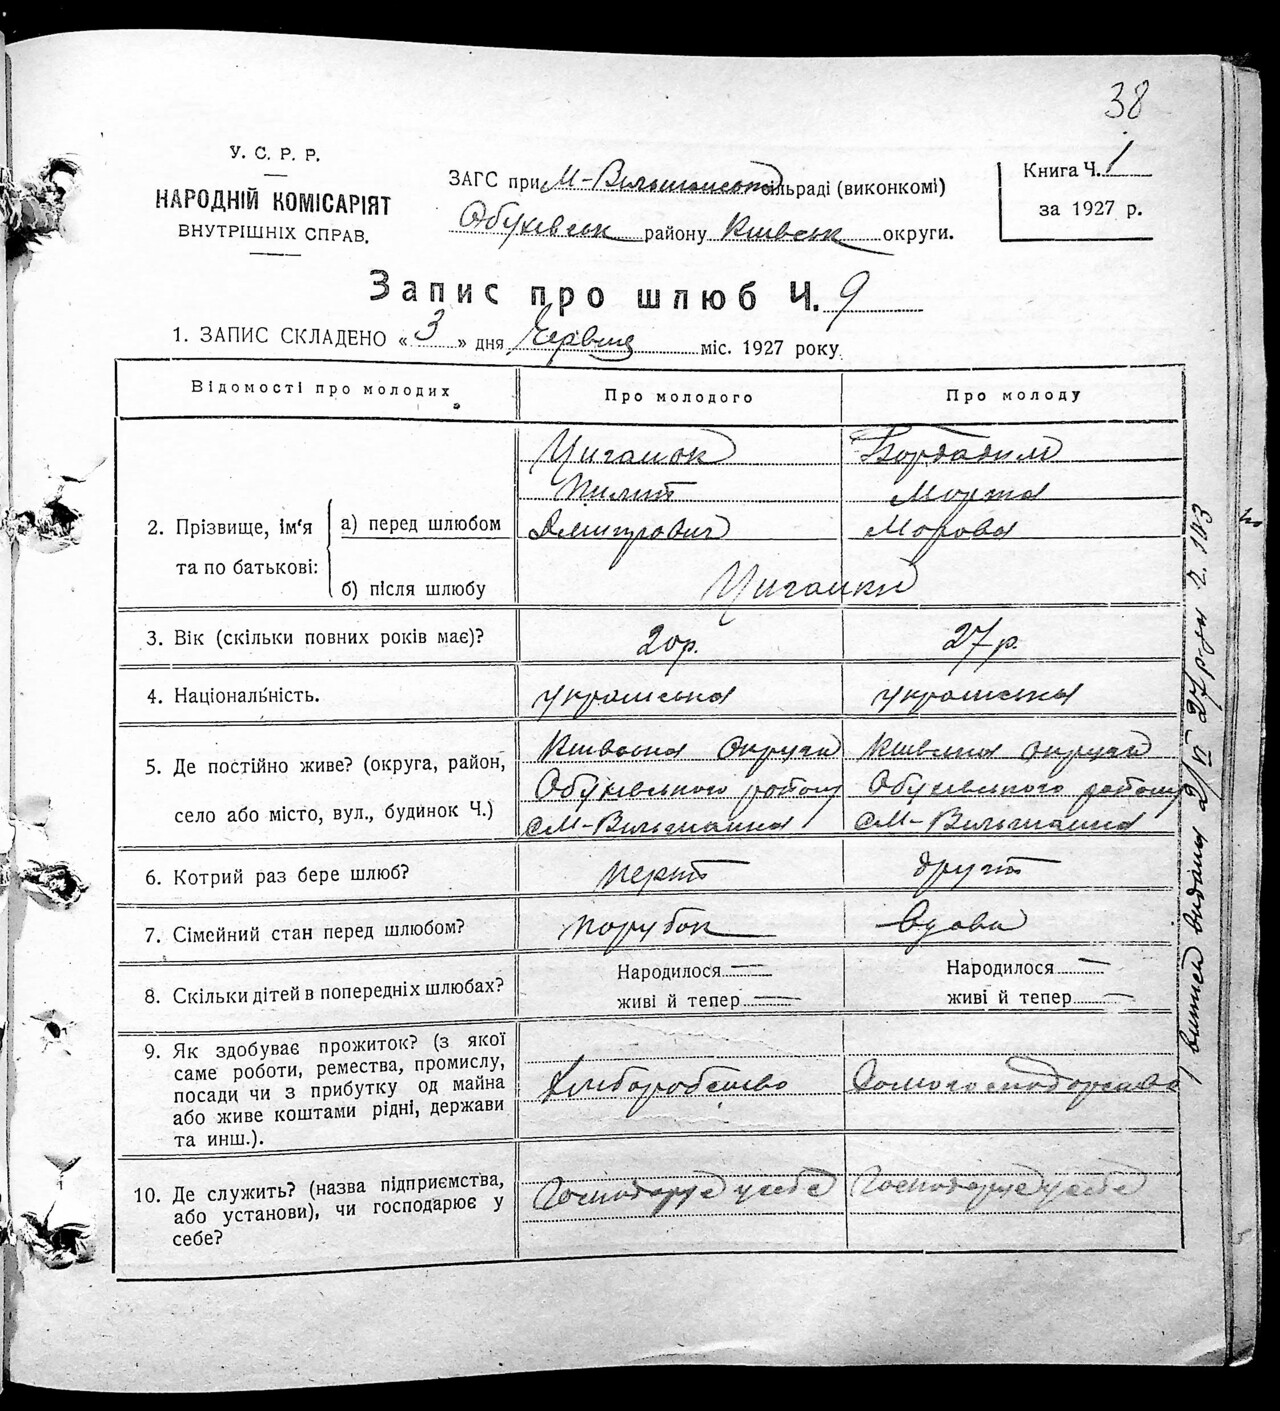 38
У. С. Р. Р.
НАРОДНІЙ КОМІСАРІЯТ
ВНУТРІШНІХ СПРАВ.
ЗАГС при М-Вільшанській сільраді (виконкомі)
Обухівськ району Київськ округи.
Книга Ч. 1
за 1927 р.
Запис про шлюб Ч. 9
1. ЗАПИС СКЛАДЕНО « 3 » дня Червня міс. 1927 року
Відомості про молодих
Про молодого
Про молоду
2. Прізвище, ім'я та по батькові:
а) перед шлюбом
Циганок
Пилип
Дмитрович
Марта
б) після шлюбу
Циганки
3. Вік (скільки повних років має)?
20р.
27р.
4. Національність.
українська
українська
5. Де постійно живе? (округа, район,
село або місто, вул., будинок Ч.)
Київська округи
Обухівського району
с М-Вільшанка
Київська округи
Обухівського району
с М-Вільшанка
6. Котрий раз бере шлюб?
перший
другий
7. Сімейний стан перед шлюбом?
парубок
вдова
8. Скільки дітей в попередніх шлюбах?
Народилося —
живі й тепер —
Народилося —
живі й тепер —
9. Як здобуває прожиток? (з якої
саме роботи, ремества, промислу,
посади чи з прибутку од майна
або живе коштами рідні, держави
та инш.).
Хліборобство
Домогосподарство
10. Де служить? (назва підприємства,
або установи), чи господарює у
себе?
Господарує у себе
Господарує у себе
видана 2/VI 27 р. ч. 143